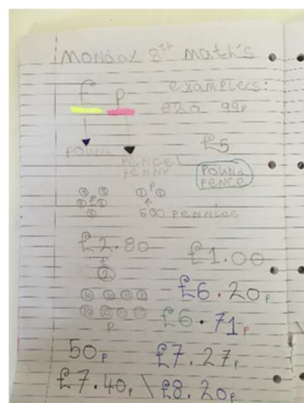 Monday 8th math's
£ p examplers:
£20 99p
pound £5
pence
penny
pound
pence
£ p
500 pennies
£2.80 £1.00
£6.20p
£6.71p
p
50p £7.27p
£7.40p £8.20p